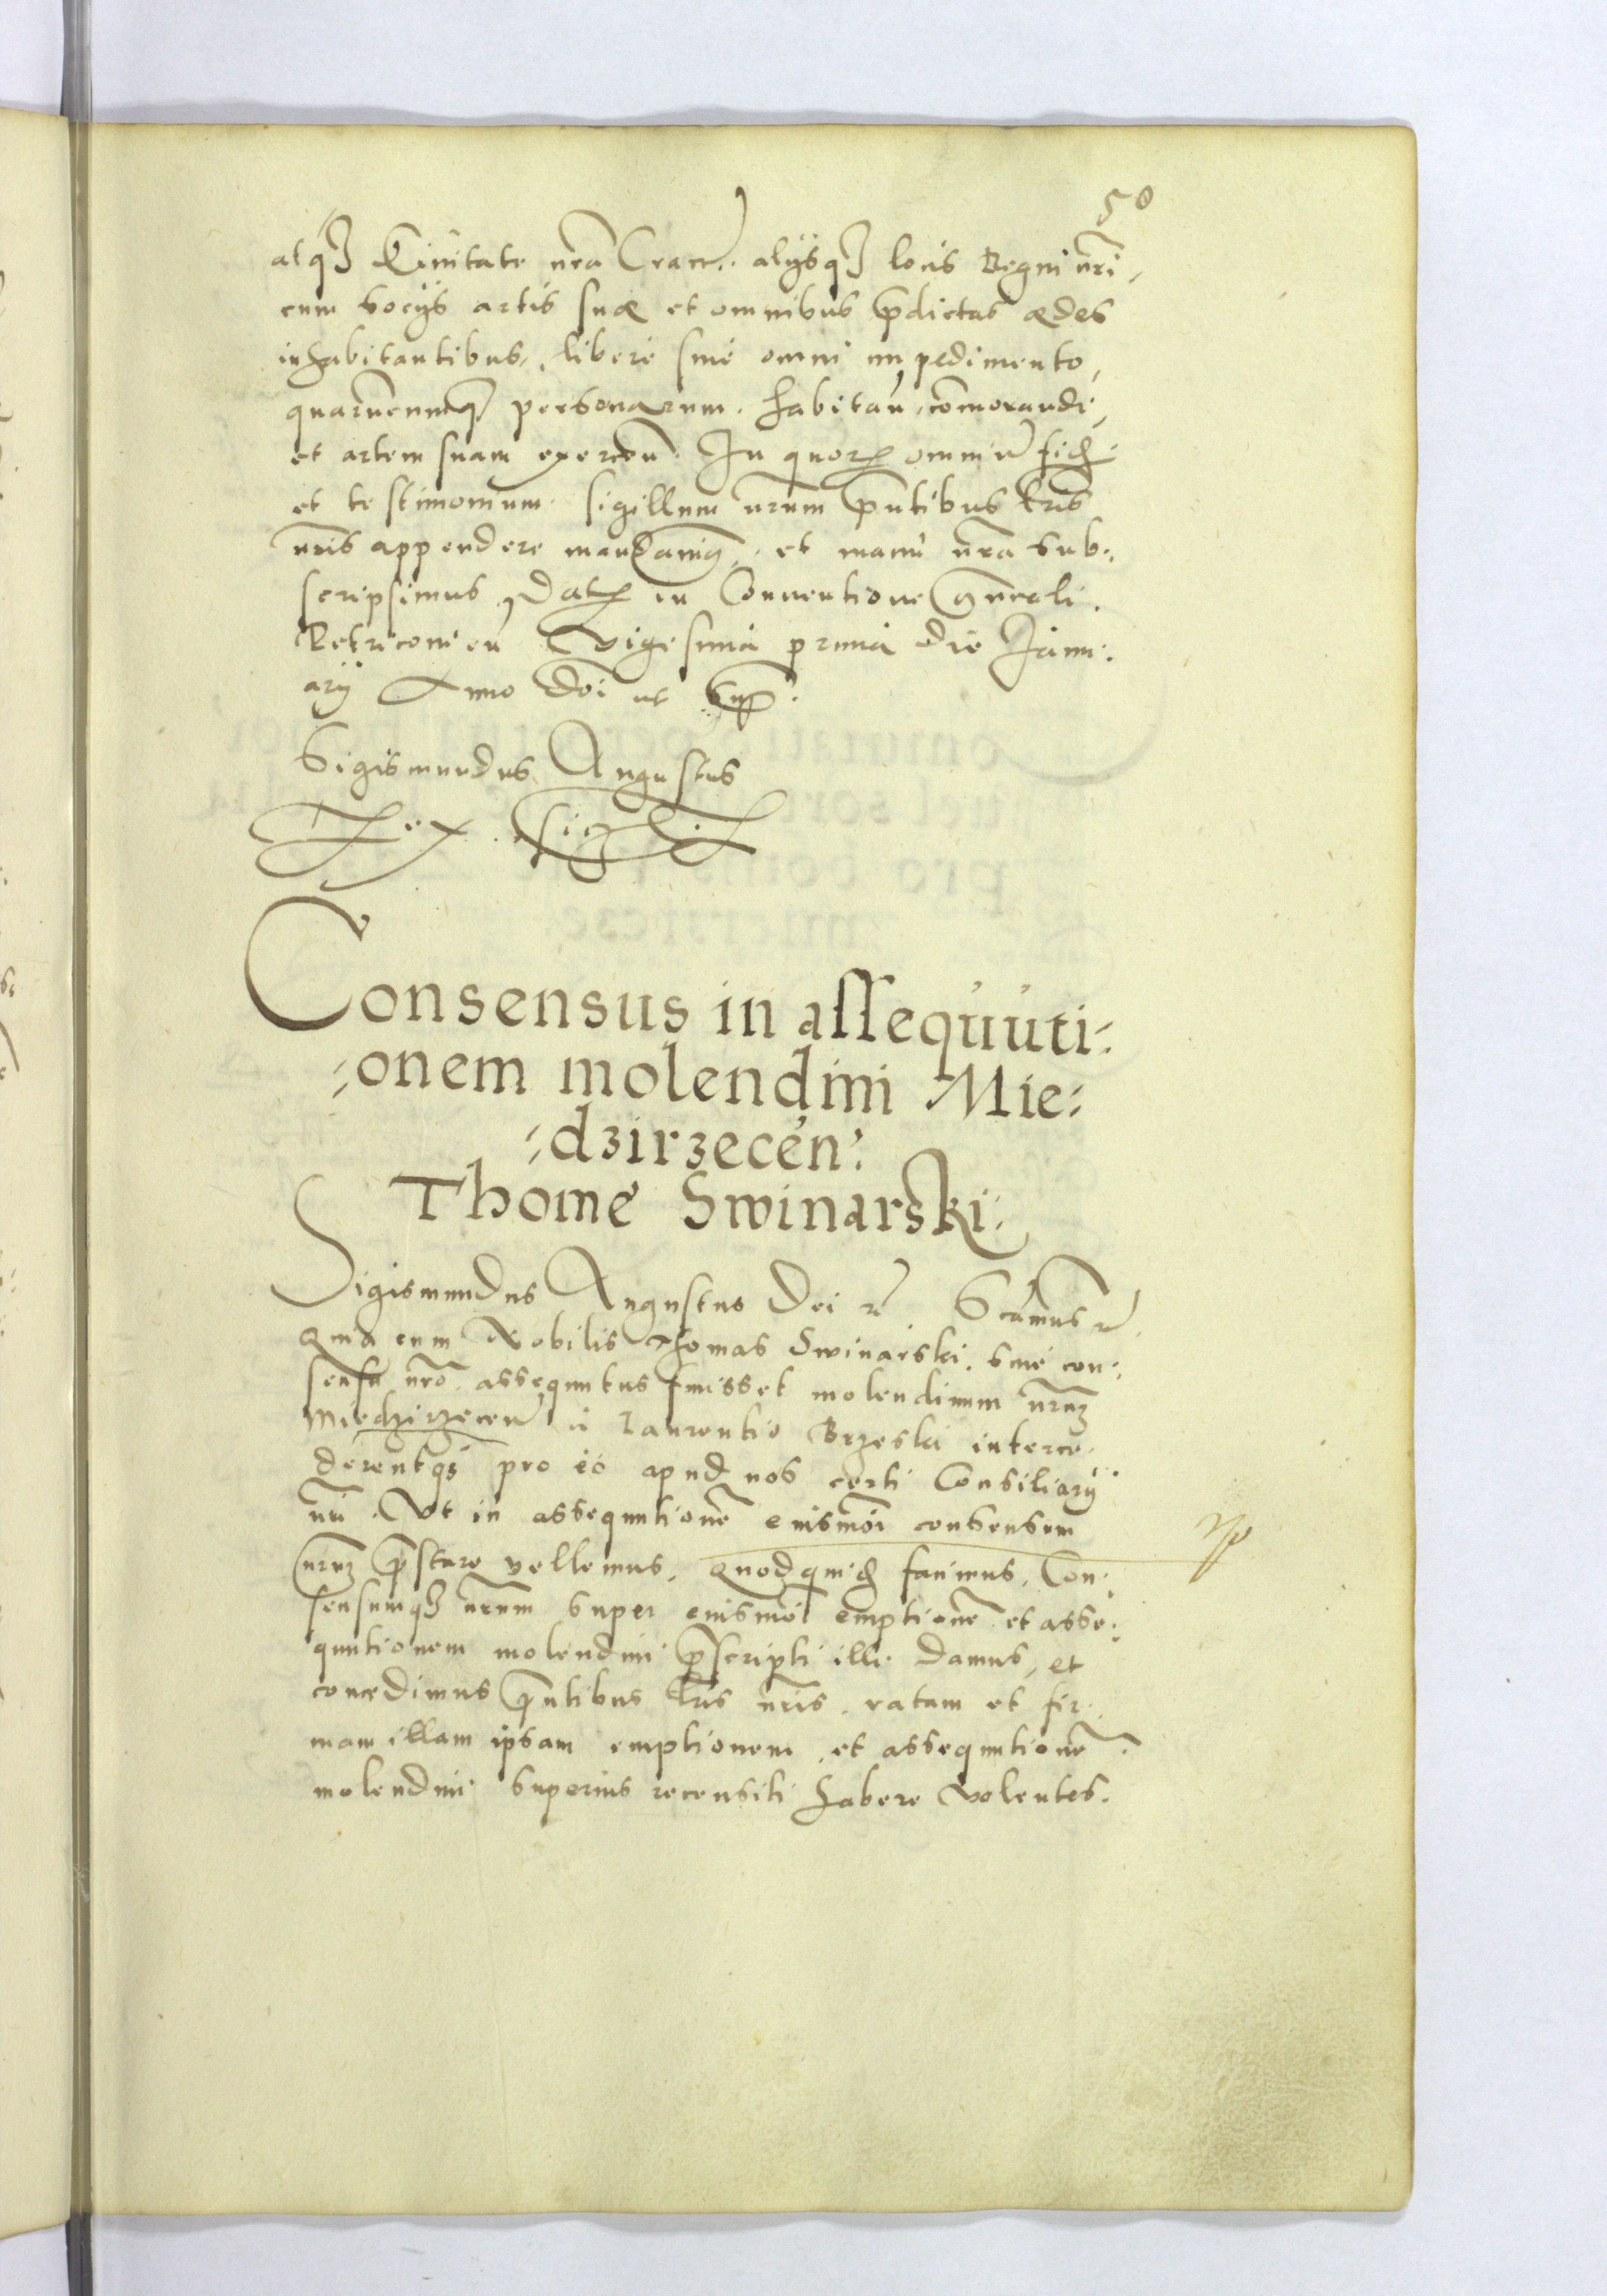 50
atq3 Ciuitate nrã Crac̃. alijsq3 locis Regni nr̃i,
cum socijs artis suæ et omnibus p̃dictas ædes
inhabitantibus, liberè sine omni impedimento,
quarumcumq3 personarum. habitañ, com̃orandi,
et artem suam exerceñ. In quorꝝ omniũ fid̃
et testimonium sigillum nr̃um p̃ntibus lr̃is
nr̃is appendere mandauimꝰ. et manu nr̃a sub-
scripsimus Datꝝ in Conuentione gñrali.
Petricouieñ Vigesima prima die Janu:
arij Anno Doĩ ut Supꝝ.
Sigismundus Augustus
Rex
Consensus in assequuti:
:onem molendini Mie:
:dzirzeceñ:
Thome Swinarski.
Sigismundus Augustus Dei ꝛc̃ S̃camus ꝛc̃.
Quia cum Nobilis Thomas Swinarski. sine con:
sensu nr̃o assequutus fuisset molendinum nr̃um
Miedzirzeceñ à Laurentio Brzeski interce-
derentq3 pro eo apud nos certi Consiliarij
nr̃i. Vt in assequutionẽ eiusmõi consensum
nr̃um p̃stare vellemus, Quod quid̃ facimus. Con:
sensumq3 nr̃um super eiusmõi emptionẽ et asse:
quutionem molendini p̃scripti illi damus, et
concedimus p̃ntibus lr̃is nr̃is. ratam et fir:
mam illam ipsam emptionem, et assequutionẽ
molendini superius recensiti habere volentes.